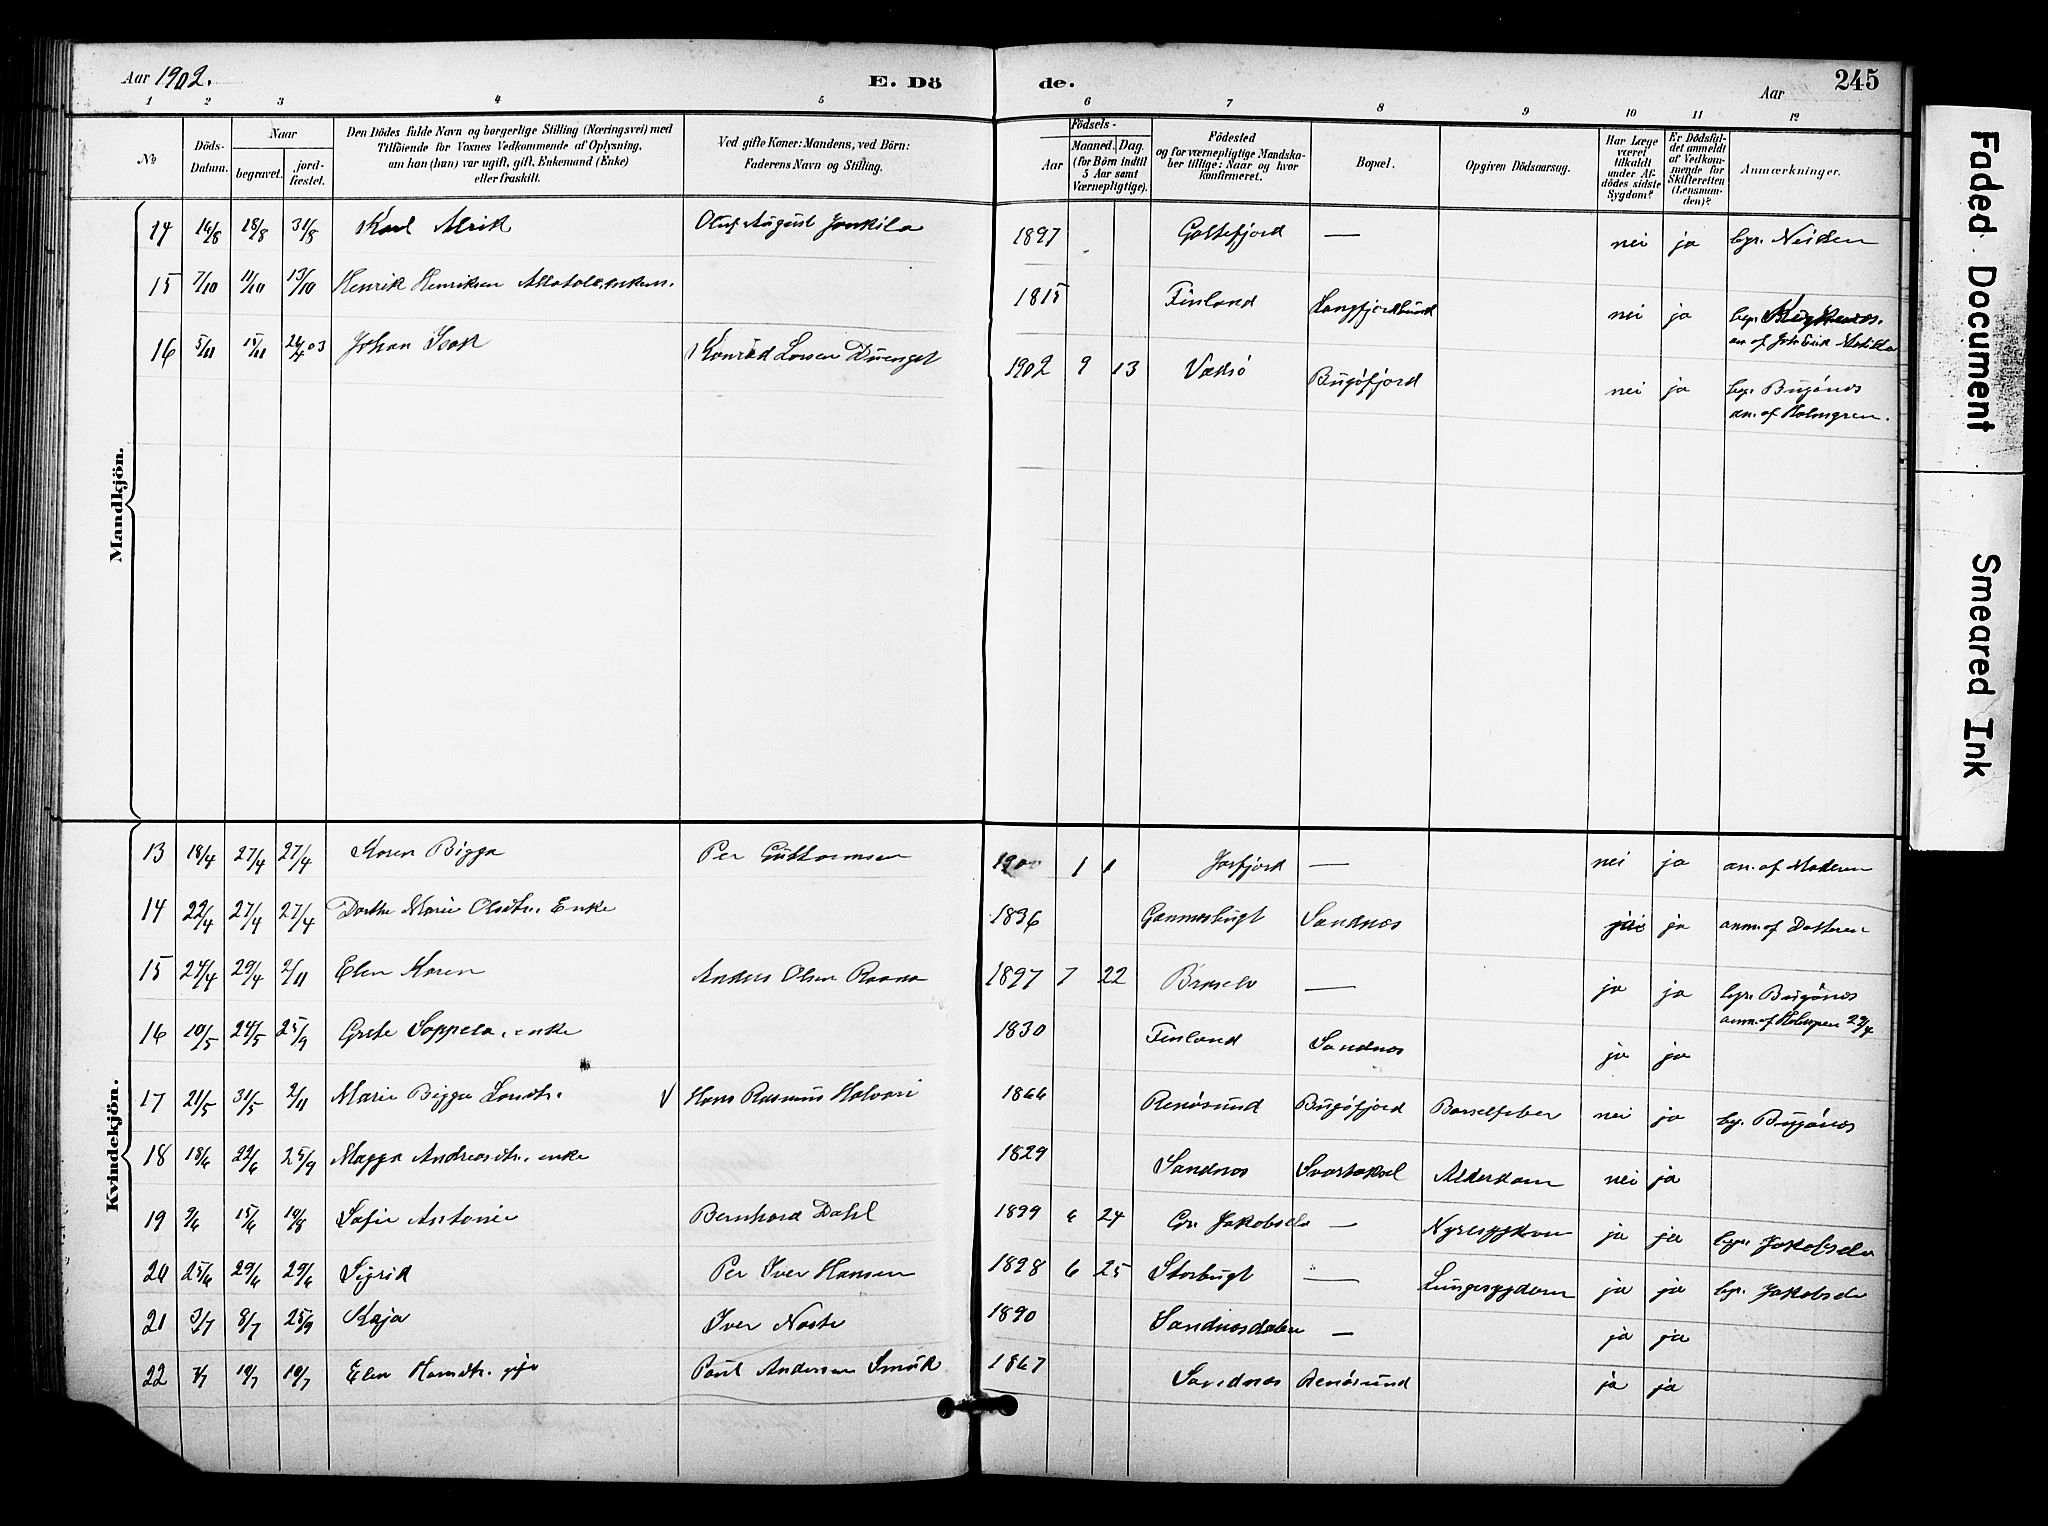 Aar 1902.
E. Dö
de.
Aar
245
1 2 3 4 5 6 7 8 9 10 11 12
No
Döds-Datum.
Naar
begravet.
jord-fæstet.
Den Dödes fulde Navn og borgerlige Stilling (Næringsvei) med
Tilföiende for Voxnes Vedkommende af Oplysning,
om han (hun) var ugift, gift, Enkemand (Enke)
eller fraskilt.
Ved gifte Koner: Mandens, ved Börn:
Faderens Navn og Stilling.
Födsels-
Aar
Maaned. Dag.
(for Börn indtil
5 Aar samt
Værnepligtige).
Födested
og for værnepligtige Mandska-
ber tillige: Naar og hvor
konfirmeret.
Bopæl.
Opgiven Dödsaarsag.
Har Læge
været
tilkaldt
under Af-
dödes sidste
Sygdom?
Er Dödsfal-
det anmeldt
af Vedkom-
mende for
Skifteretten
(Lensman-
den)?
Anmærkninger.
Mandkjön.
14 16/8 18/8 31/8 Karl Alrik Oluf August Jankila 1897 Goltefjord — nei ja byr. Neiden
15 7/10 11/10 13/10 Henrik Henriksen enkem. 1815 Finland Langfjordbund nei ja
16 5/11 15/11 26/4 03 Johan Isak Konrad Larsen 1902 9 13 Vadsö Bugöfjord nei ja byr. Bugönæs
an. af Holmgren.
Kvindekjön.
13 18/4 27/4 27/4 Karen Bigga Per Guttormsen 1900 1 1 Jarfjord — nei ja an. af Moderen
14 22/4 27/4 27/4 Dorthe Marie Olsdtr. Enke 1836 Sandnæs ja anm. af Datteren
15 24/4 29/4 2/11 Elen Karen Anders Olsen 1897 7 22 — ja ja byr. Bugönæs
anm. af Holmgren 29/4
16 10/5 24/5 25/9 Grete Soppela, enke 1830 Finland Sandnæs ja ja
17 21/5 31/5 2/11 Marie Bigga V Hans Rasmus Halvari 1866 Renösund Bugöfjord Barselfeber nei ja by. Bugönæs
18 18/6 22/6 25/9 Magga Andreasdtr. enke 1829 Sandnæs Alderdom nei ja
19 9/6 15/6 10/8 Sofie Antonie Bernhard Dahl 1899 6 24 Gr. Jakobselv — Nyresygdom ja ja byr. Jakobselv
20 25/6 29/6 29/6 Sigrid Per Iver Hansen 1898 6 25 Storbugt — Lungesygdom ja ja byr. Jakobselv
21 3/7 8/7 25/9 Kaja Iver Naste 1890 Sandnæsdalen — ja ja
22 7/7 10/7 10/7 Elen Hansdtr. Poul Andersen Smuk 1867 Sandnæs Renösund ja ja
Faded Document
Smeared Ink